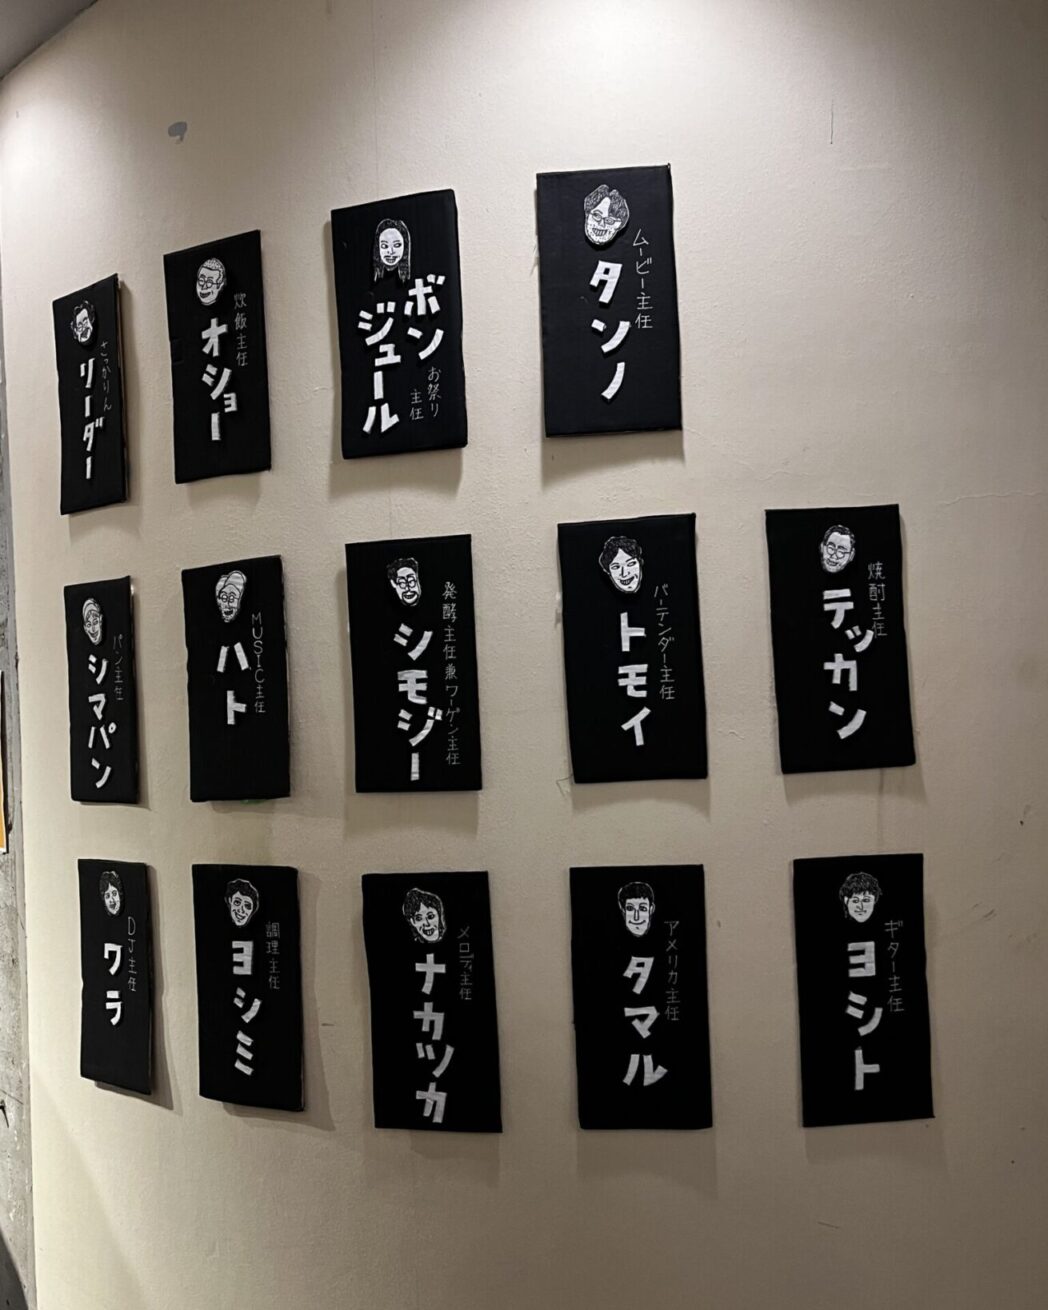 さっかりん
リーダー
炊飯主任
オショー
ボン
ジュール
お祭り
主任
ムービー主任
タンノ
パン主任
シマパン
MUSIC主任
ハト
発酵主任兼ワーゲン主任
シモジー
バーテンダー主任
トモイ
焼酎主任
テッカン
DJ主任
ワラ
調理主任
ヨシミ
メロディ主任
ナカツカ
アメリカ主任
タマル
ギター主任
ヨシト